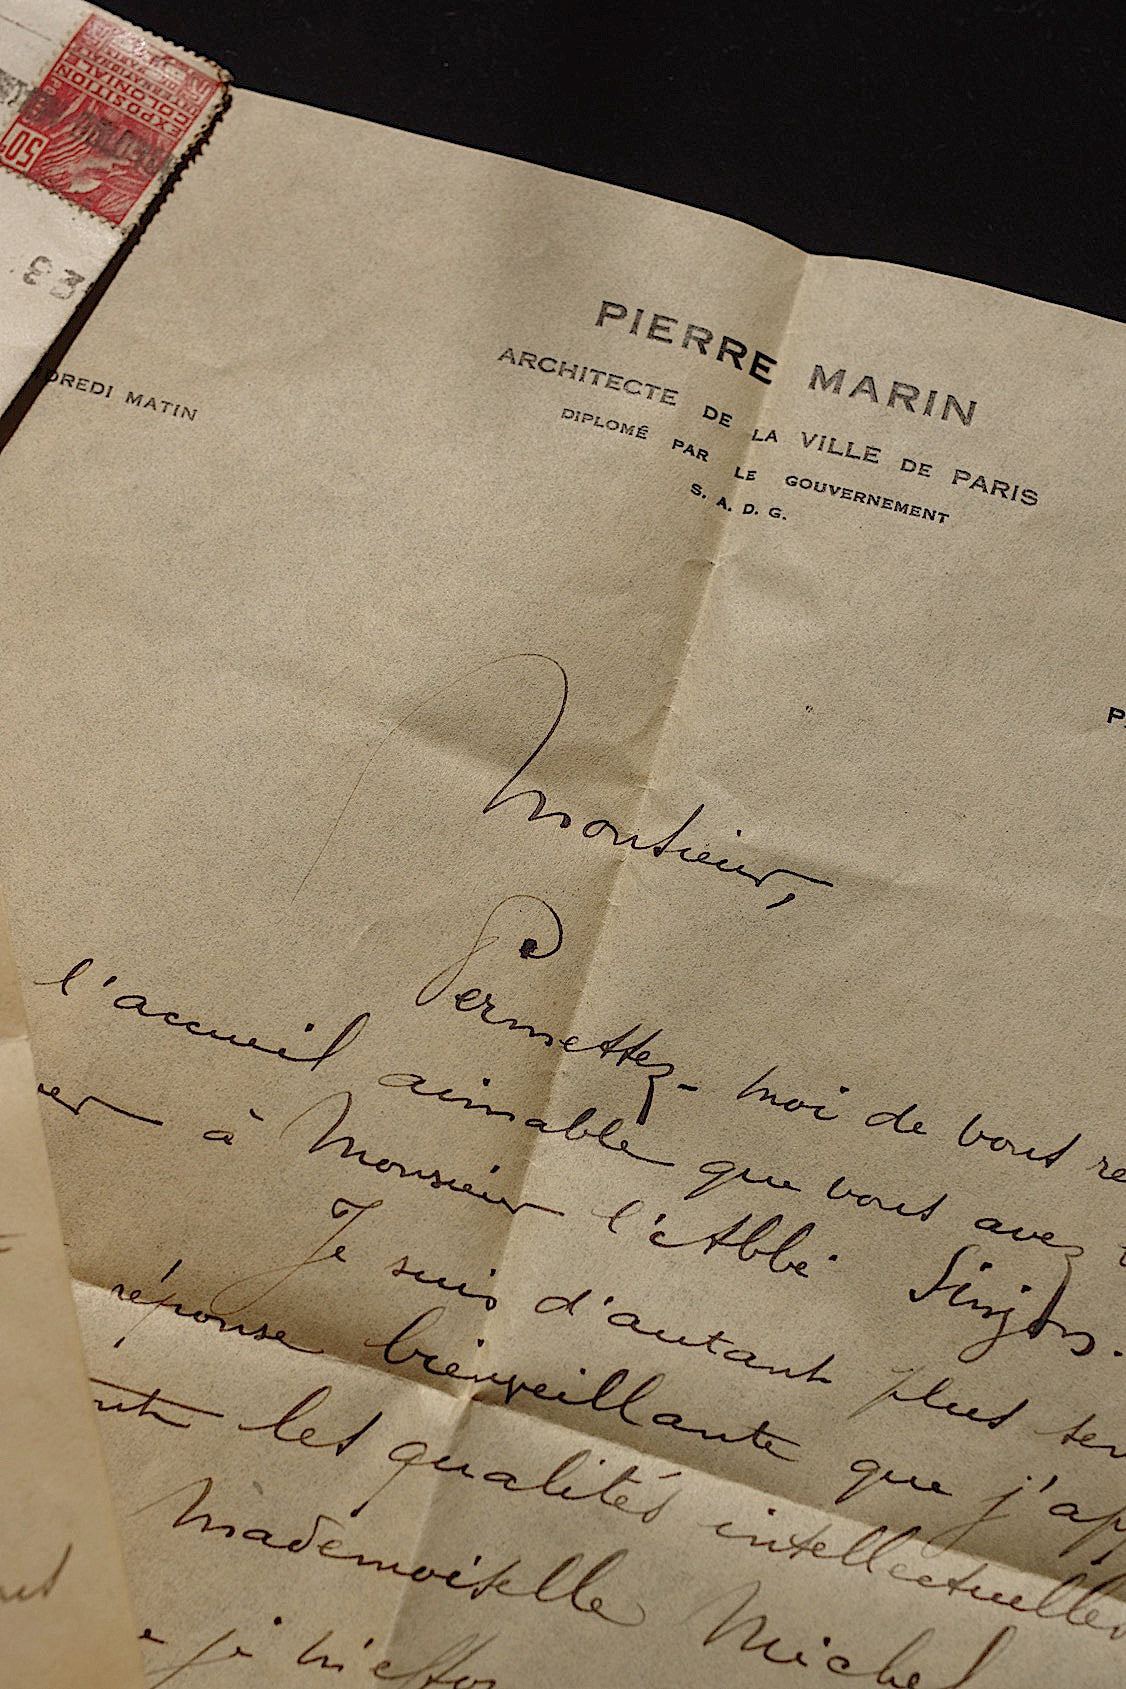 EXPOSITION
COLONIALE
50c
PIERRE MARIN
ARCHITECTE DE LA VILLE DE PARIS
DIPLOMÉ PAR LE GOUVERNEMENT
S. A. D. G.
DREDI MATIN
Monsieur,
Permettez-moi de vous re
l'accueil aimable que vous avez
er à Monsieur l'Abbé
Je suis d'autant plus sen
réponse bienveillante que j'app
les qualités intellectuelles
Mademoiselle Michel